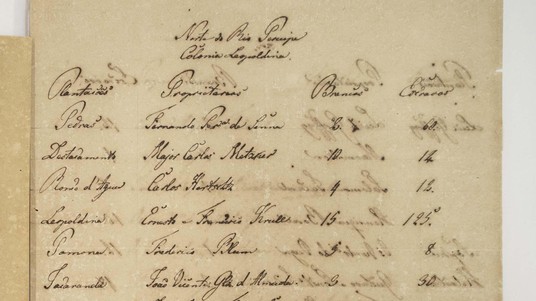 Norte do Rio Peruipe
Colonia Leopoldina
Plantações Proprietarios Brancos Escravos
Pedras Fernando de Senna 60
Destacamento Major Carlos Metzker 10 14
Ronde d'Agua Carlos 4 12
Leopoldina Ernesto e Frederico Krull 15 125
Frederico Blum 5 8
João Vicente de Almeida 3 30